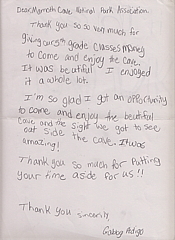 Dear Mammoth Cave Natinol Park Association.
Thank you so so very much for
giving our 5th grade classes money
to come and enjoy the cave.
It was beutiful I enjoyed
it a whole lot.
I'm so glad I got an opportunity
to come and enjoy the beutiful
cave and the sight we got to see
out side the cave. It was
amazing!
Thank you so much for putting
your time aside for us!!
Thank you sincerly
Gabby